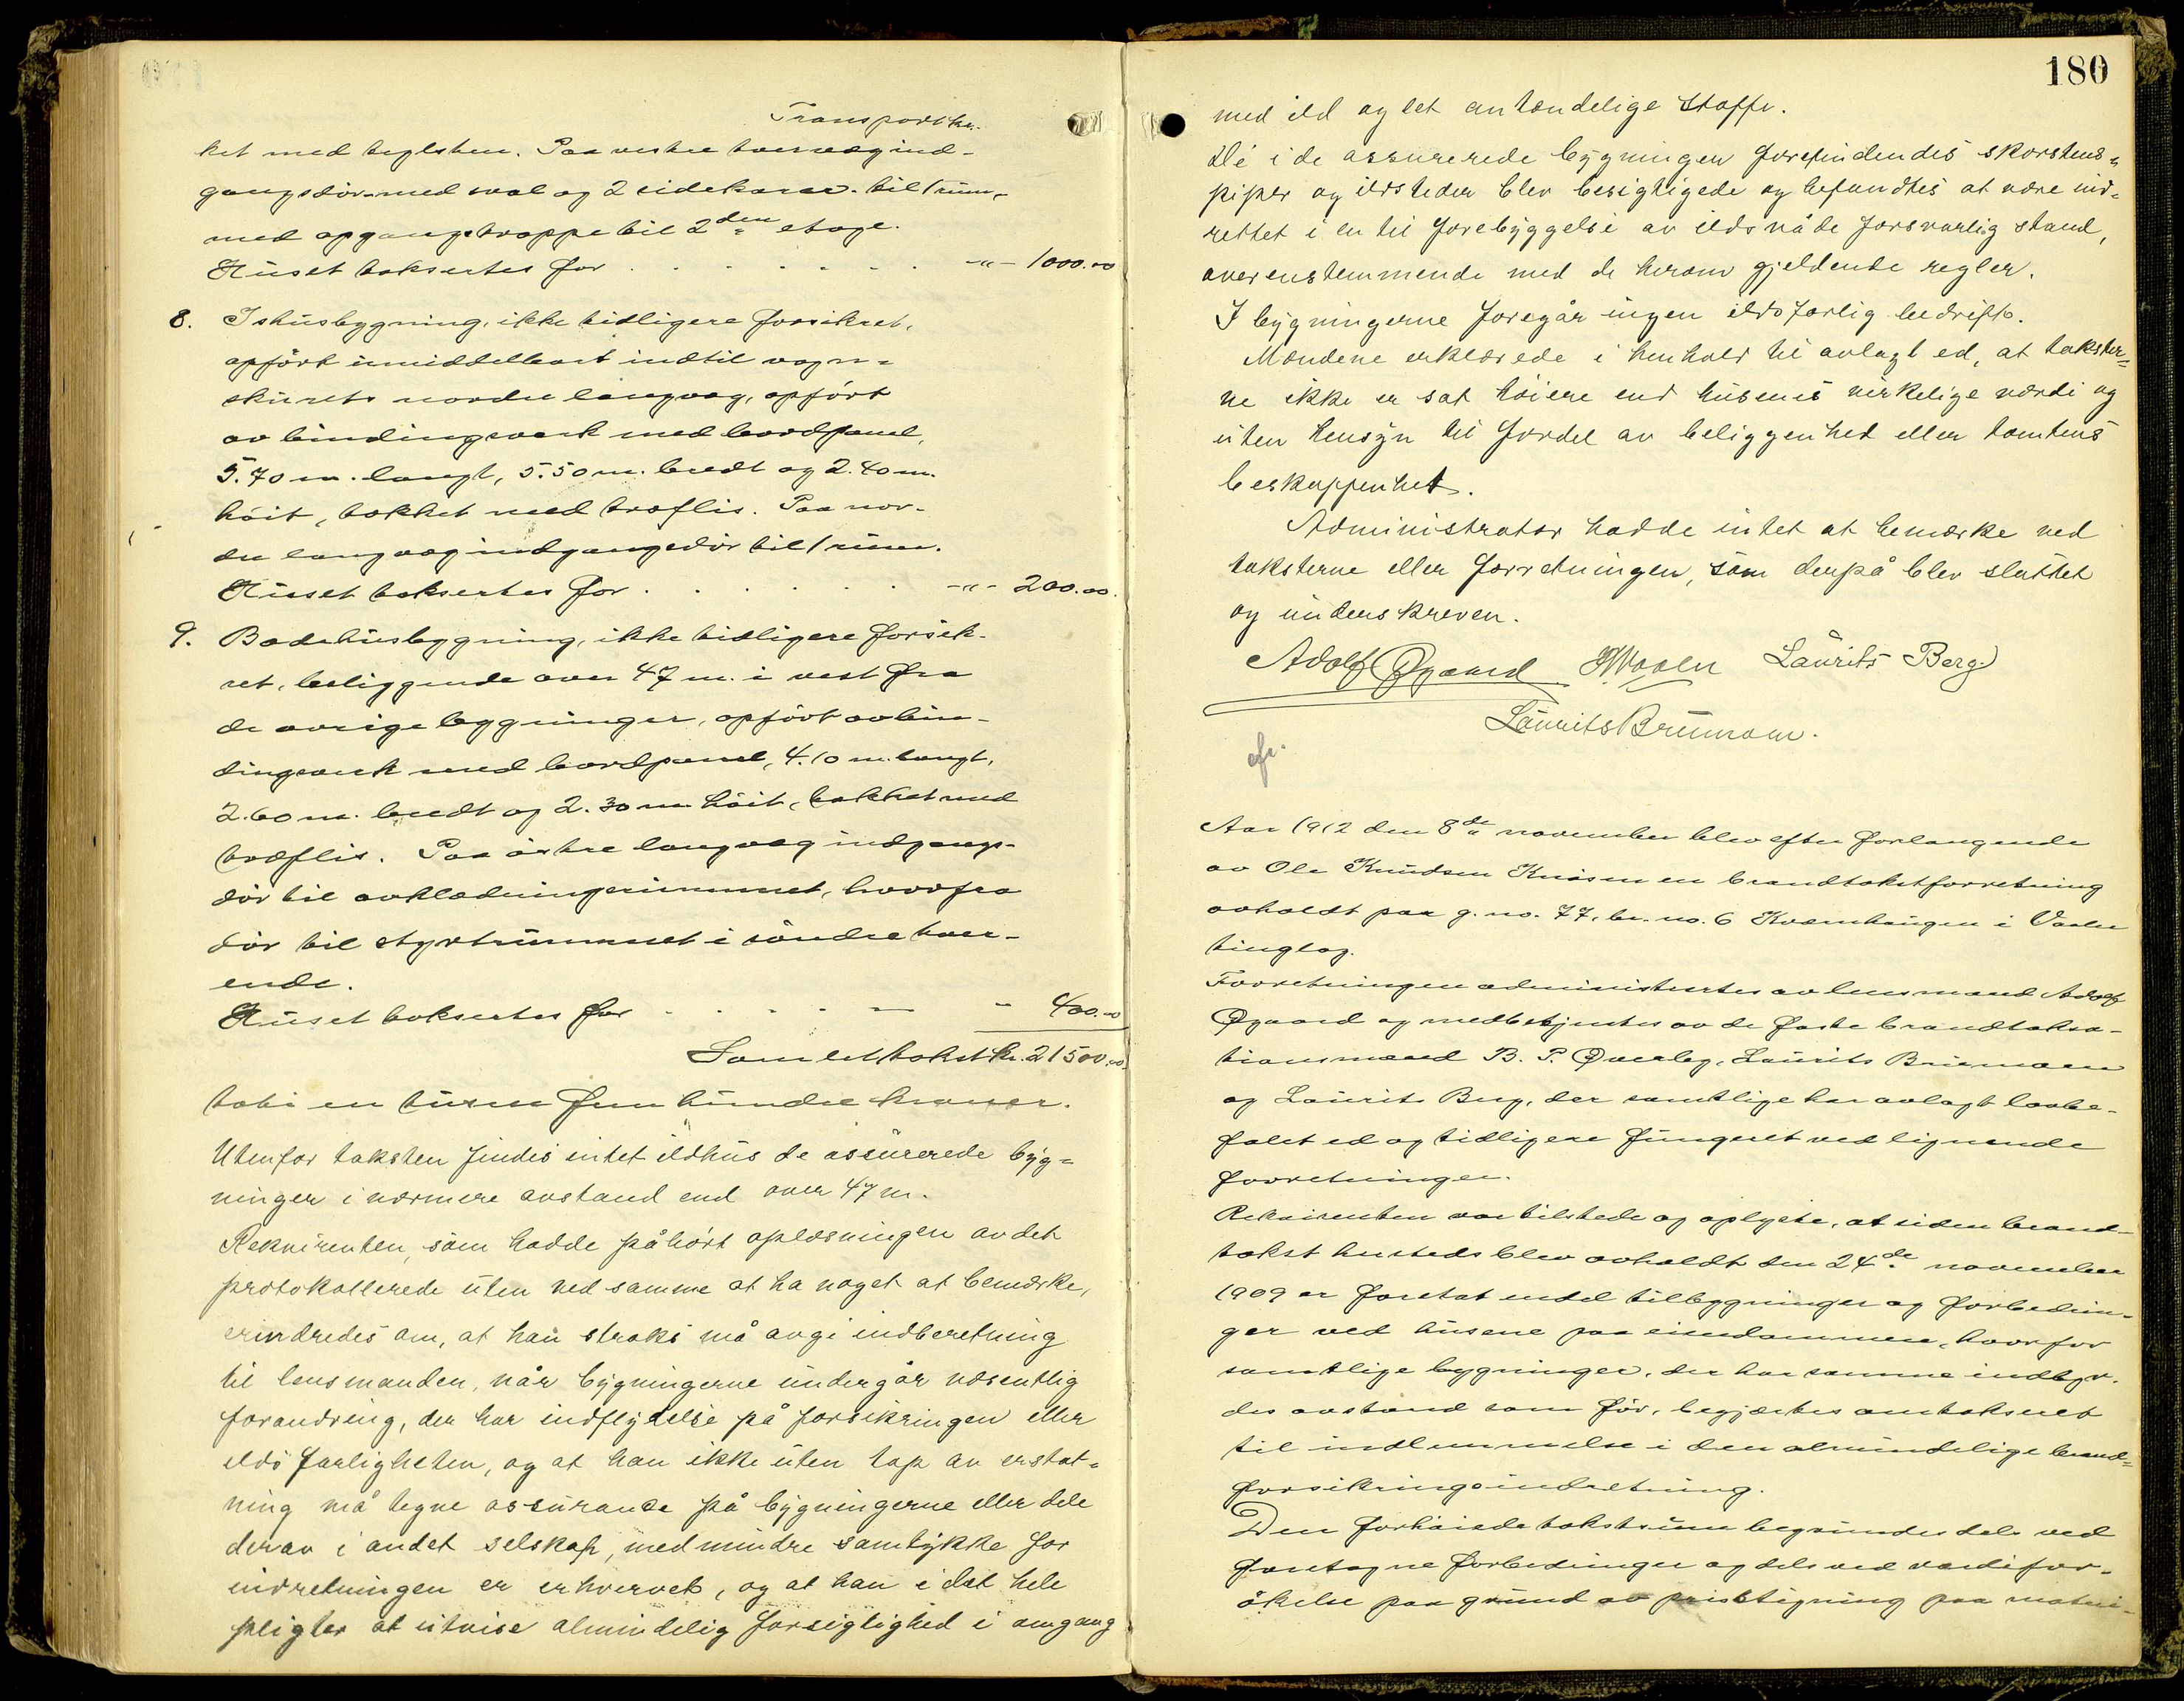 Transport kr.
ket med teglsten. Paa vestre tvervæg ind-
gangsdør med sval og 2 sidekarar til 1 rum,
med opgangstrappe til 2den etage.
Huset taksertes for . . . . . . . -"- 1000.00
8. Ishusbygning, ikke tidligere forsikret,
opført umiddelbart indtil vogn-
skurets nordre langvæg, opført
av bindingsverk med bordpanel,
5.70 m. langt, 5.50 m. bredt og 2.40 m.
høit, tækket med træflis. Paa nor-
dre langvæg indgangsdør til 1 rum.
Huset taksertes for . . . . . . -"- 200.00.
9. Badehusbygning, ikke tidligere forsik-
ret, beliggende over 47 m. i vest fra
de øvrige bygninger, opført av bin-
dingsverk med bordpanel, 4.10 m. langt,
2.60 m. bredt og 2.30 m høit, tækket med
træflis. Paa østre langvæg indgangs-
dør til avklædningsrummet, hvorfra
dør til styrtrummet i søndre tver-
ende.
Huset taksertes for . . . . - 400.00
Samlet takst kr. 21500.00.
toti en tusen fem hundre kroner.
Utenfor taksten findes intet ildhus de assurerede byg=
ninger i nærmere avstand end over 47 m.
Rekvirenten, som hadde påhørt oplæsningen av det
protokollerede uten ved samme at ha noget at bemærke,
erindredes om, at han straks må avgi indberetning
til lensmanden, når bygningerne undergår væsentlig
forandring, der har indflydelse på forsikringen eller
ildsfarligheten, og at han ikke uten tap av erstat=
ning må tegne assurance på bygningerne eller dele
derav i andet selskap, medmindre samtykke for
indretningen er erhvervet, og at han i det hele
pligter at utvise almindelig forsigtighed i omgang
180
med ild og let antændelige stoffe.
De i de assurerede bygningen forefindendes skorstens=
piper og ildsteder blev besigtigede og befandtes at være ind=
rettet i en til forebyggelse av ildsvåde forsvarlig stand,
overenstemmende med de herom gjeldende regler.
I bygningerne foregår ingen ildsfarlig bedrift.
Mændene erklærede i henhold til avlagt ed, at takster=
ne ikke er sat høiere end husenes virkelige værdi og
uten hensyn til fordel av beliggenhet eller tomtens
beskaffenhet.
Administrator hadde intet at bemærke ved
taksterne eller forretningen, som derpå blev sluttet
og underskreven.
Adolf Øgaard Laurits Berg
Laurits Brunæn.
Aar 1912 den 8de november blev efter forlangende
av Ole Knudsen en brandtakstforretning
avholdt paa g. no. 77, br. no. 6 Kvernhaugen i Vaaler
tinglag.
Forretningen administrertes av lensmand Adolf
Øgaard og medbetjentes av de faste brandtaksa-
tionsmænd B. P. Øverby, Laurits Brunæn
og Laurits Berg, der samtlige har avlagt lovbe-
falet ed og tidligere fungeret ved lignende
forretninger.
Rekvirenten var tilstede og oplyste, at siden brand-
takst husteds blev avholdt den 24de november
1909 er foretat endel tilbygninger og forbedrin-
ger ved husene paa eiendommen, hvorfor
samtlige bygninger, der har samme indbyr-
des avstand som før, begjærtes omtakseret
til indlemmelse i den almindelige brand=
forsikringsindretning.
Den forhøiede takstsum begrundes dels ved
foretagne forbedringer og dels ved værdifor-
økelse paa grund av prisstigning paa materi-